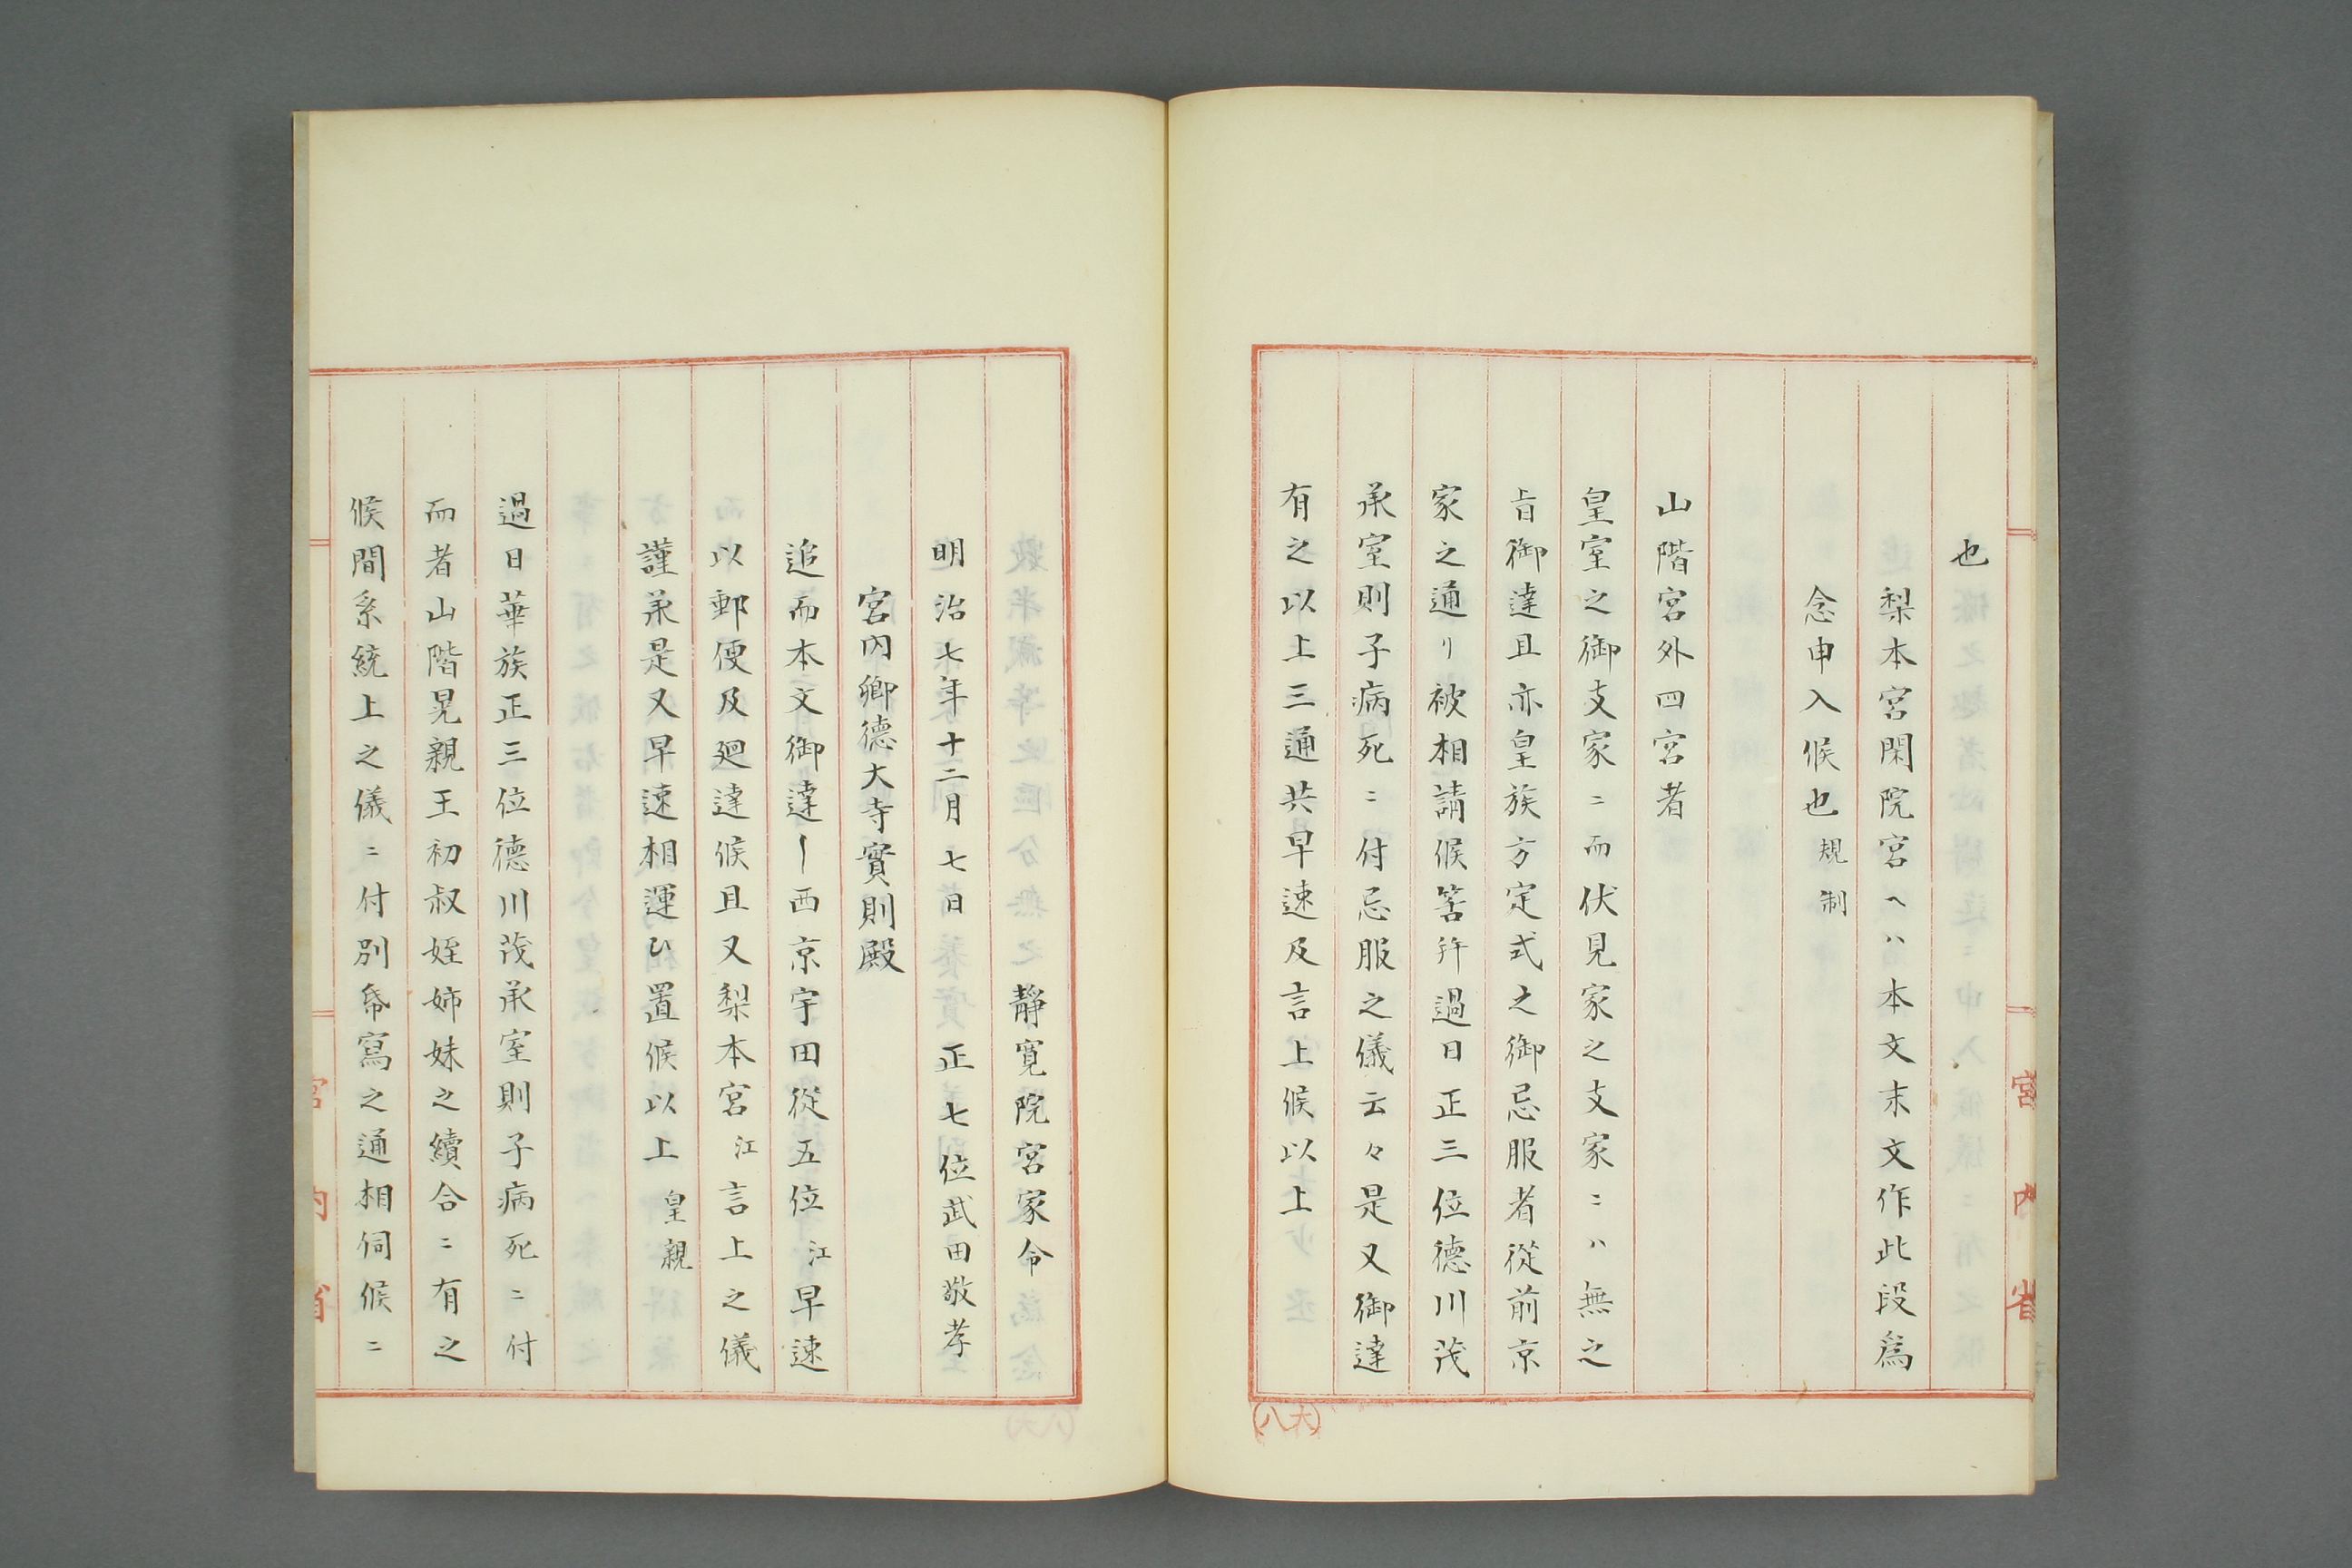 也
梨本宮閑院宮ヘハ本文末文作此段爲
念申入候也 規制
山階宮外四宮者
皇室之御支家ニ而伏見家之支家ニハ無之
旨御達且亦皇族方定式之御忌服者從前京
家之通リ被相請候筈幷過日正三位德川茂
承室則子病死ニ付忌服之儀云々是又御達
有之以上三通共早速及言上候以上
宮内省
(八六)
靜寛院宮家令
明治七年十二月七日 正七位武田敬孝
宮内卿德大寺實則殿
追而本文御達〡西京宇田從五位江早速
以郵便及廻達候且又梨本宮江言上之儀
謹承是又早速相運ひ置候以上 皇親
過日華族正三位德川茂承室則子病死ニ付
而者山階晃親王初叔姪姉妹之續合ニ有之
候間系統上之儀ニ付別帋寫之通相伺候ニ
宮内省